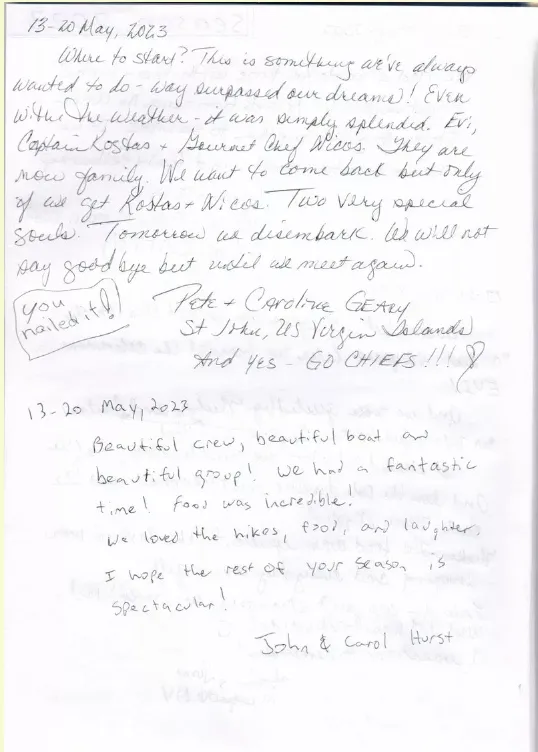 13-20 May, 2023
Where to start? This is something we've always
wanted to do - way surpassed our dreams! Even
with the weather - it was simply splendid. Evi,
Captain Kostas + Gourmet Chef Nicos. They are
now family. We want to come back but only
if we get Kostas + Nicos. Two very special
souls. Tomorrow we disembark. We will not
say good bye but until we meet again.
you
nailed it!
Pete + Caroline Geary
St John, US Virgin Islands
And yes - GO CHIEFS!!!
13-20 May, 2023
Beautiful crew, beautiful boat and
beautiful group! We had a fantastic
time! Food was incredible!
We loved the hikes, food, and laughter.
I hope the rest of your season is
spectacular!
John & Carol Hurst